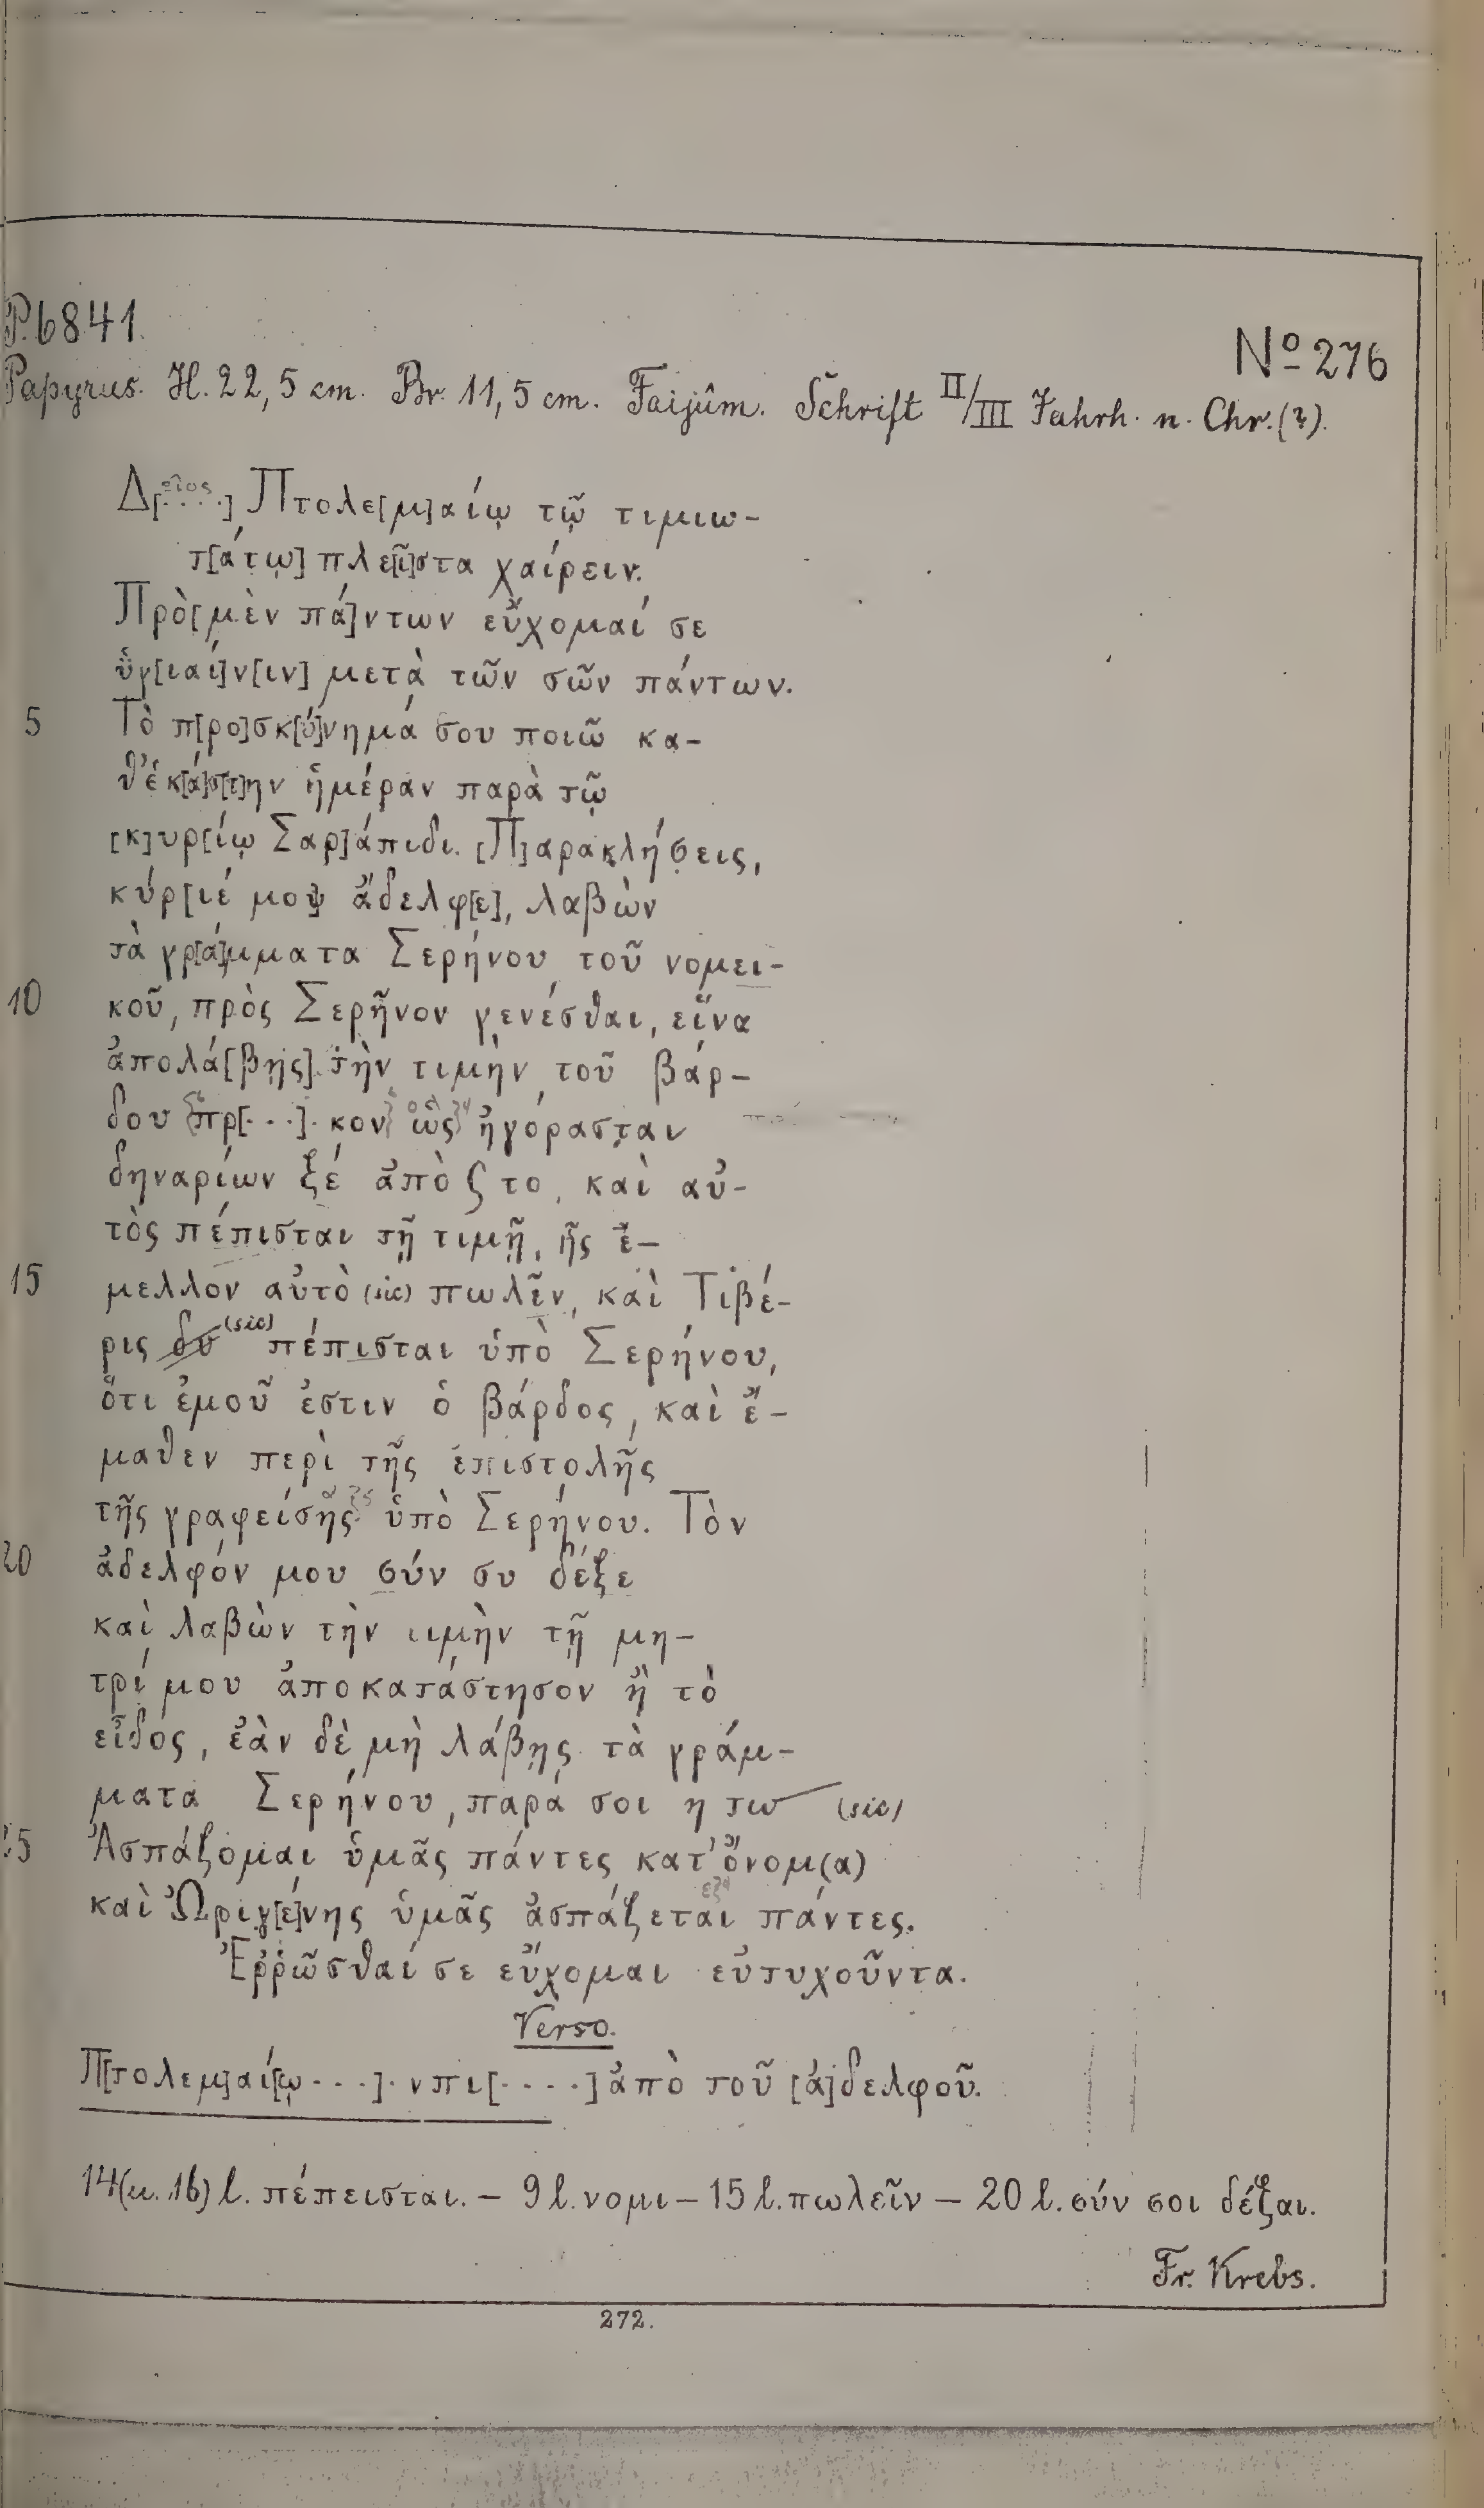 P. 6841.
Nº 276
Papyrus. H. 22,5 cm. Br. 11,5 cm. Faijûm. Schrift II/III Jahrh. n. Chr. (?).
Δ[....] Πτολε[μ]αίῳ τῷ τιμιω-
τ[άτῳ] πλε[ῖ]στα χαίρειν.
Πρὸ [μὲν πά]ντων εὔχομαί σε
ὑγ[ιαί]ν[ιν] μετὰ τῶν σῶν πάντων.
5 Τὸ π[ρο]σκ[ύ]νημά σου ποιῶ κα-
θ' ἑκ[ά]σ[τ]ην ἡμέραν παρὰ τῷ
[κ]υρ[ίῳ Σαρ]άπιδι. [Π]αρακλήσεις,
κύρ[ιέ μο]υ ἄδελφ[ε], λαβὼν
τὰ γρ[ά]μματα Σερήνου τοῦ νομει-
10 κοῦ, πρὸς Σερῆνον γενέσθαι, εἵνα
ἀπολά[βῃς] τὴν τιμὴν τοῦ βάρ-
δου πρ[...]. κον ὡς ἠγόρασται
δηναρίων ξέ ἀπὸ ϛ το, καὶ αὐ-
τὸς πέπισται τῇ τιμῇ, ἧς ἔ-
15 μελλον αὐτὸ (sic) πωλῖν, καὶ Τιβέ-
ρις δυ (sic) πέπισται ὑπὸ Σερήνου,
ὅτι ἐμοῦ ἐστιν ὁ βάρδος, καὶ ἔ-
μαθεν περὶ τῆς ἐπιστολῆς
τῆς γραφείσης ὑπὸ Σερήνου. Τὸν
20 ἀδελφόν μου σύν συ δέξε
καὶ λαβὼν τὴν τιμὴν τῇ μη-
τρί μου ἀποκατάστησον ἢ τὸ
εἶδος, ἐὰν δὲ μὴ λάβῃς τὰ γράμ-
ματα Σερήνου, παρά σοι η τω (sic)
25 Ἀσπάζομαι ὑμᾶς πάντες κατ' ὄνομ(α)
καὶ Ὠριγ[έ]νης ὑμᾶς ἀσπάζεται πάντες.
Ἐρρῶσθαί σε εὔχομαι εὐτυχοῦντα.
Verso.
Π[τολεμ]αί[ῳ ...]. νπι[....] ἀπὸ τοῦ [ἀ]δελφοῦ.
14 (u. 16) l. πέπεισται. – 9 l. νομι – 15 l. πωλεῖν – 20 l. σύν σοι δέξαι.
Fr. Krebs.
272.